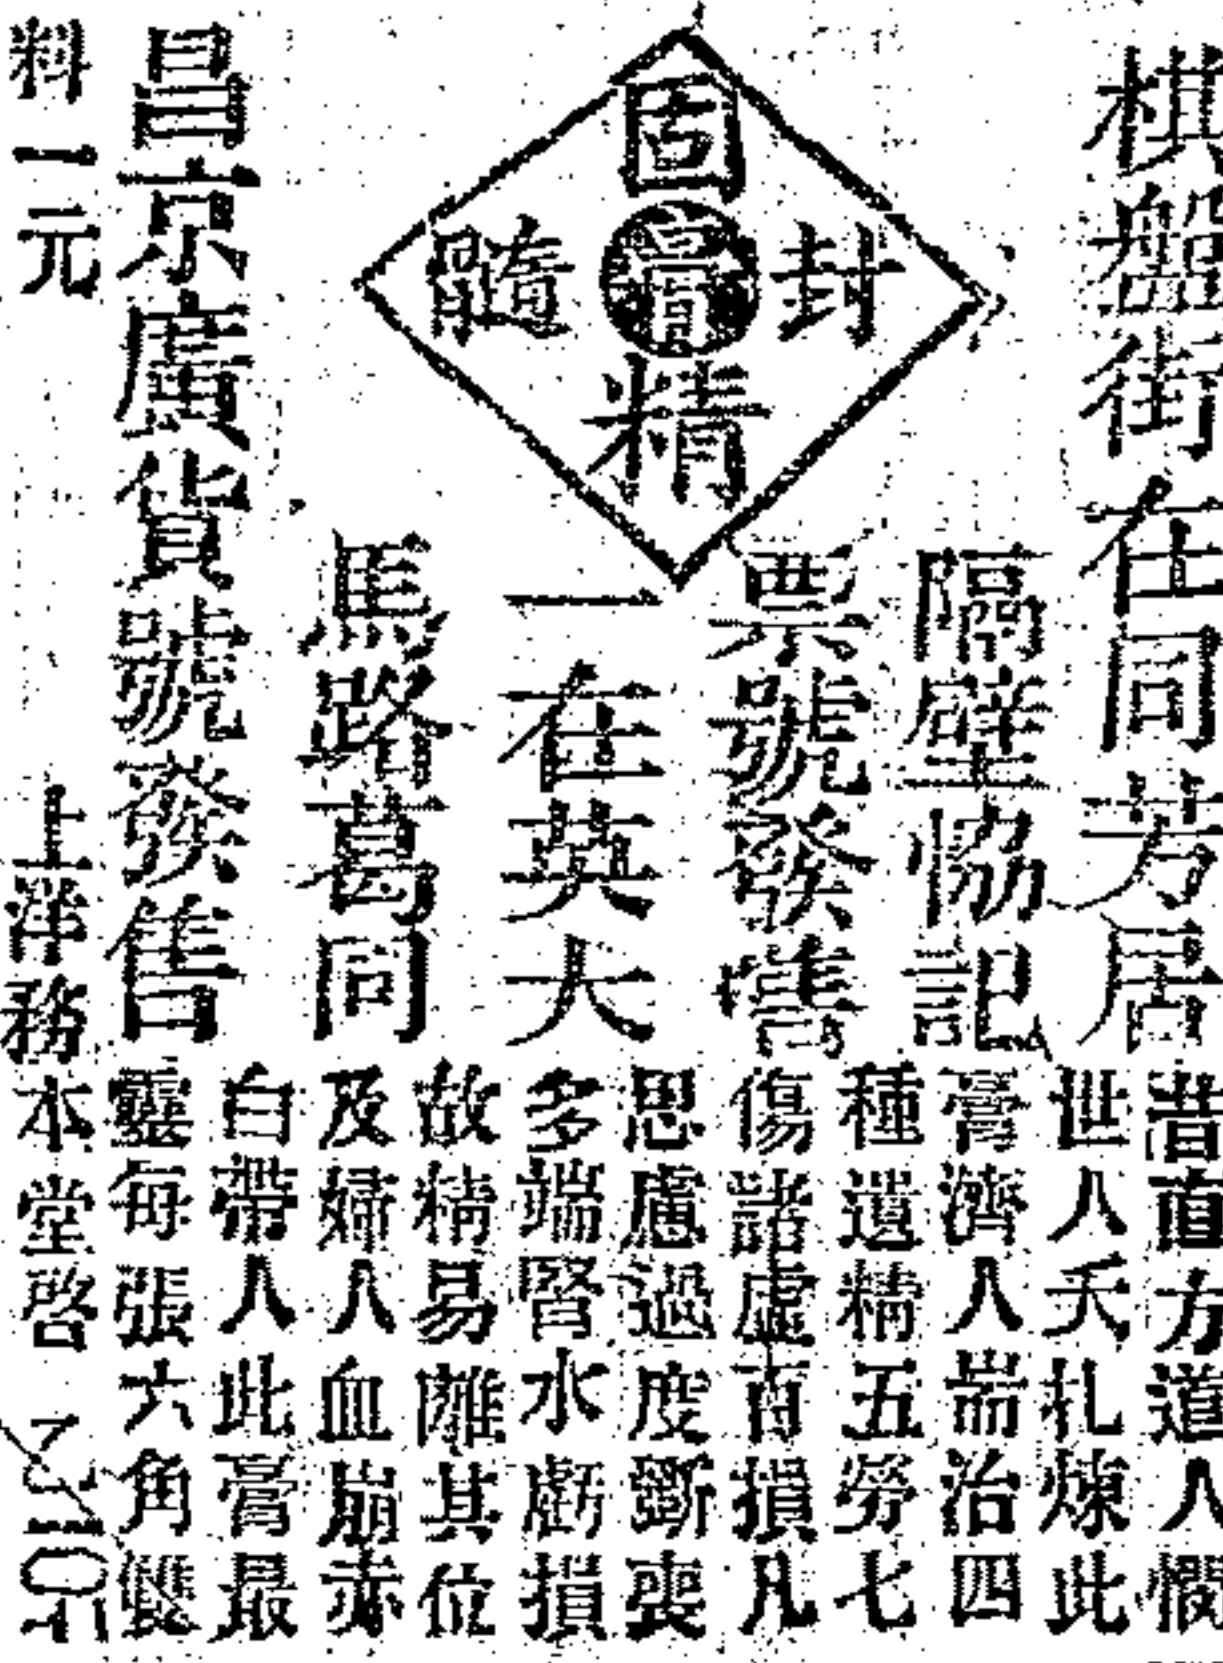 棋盤街在同芳居
隔壁協記
票號發售
固封精髓膏
一在英大
馬路葛同
昌京廣貨號發售
昔直方道人憫
世人夭札煉此
膏濟人耑治四
種遺精五勞七
傷諸虛百損凡
思慮過度斲喪
多端腎水虧損
故精易離其位
及婦人血崩赤
白帶人此膏最
靈每張六角雙
料一元
上洋務本堂啓